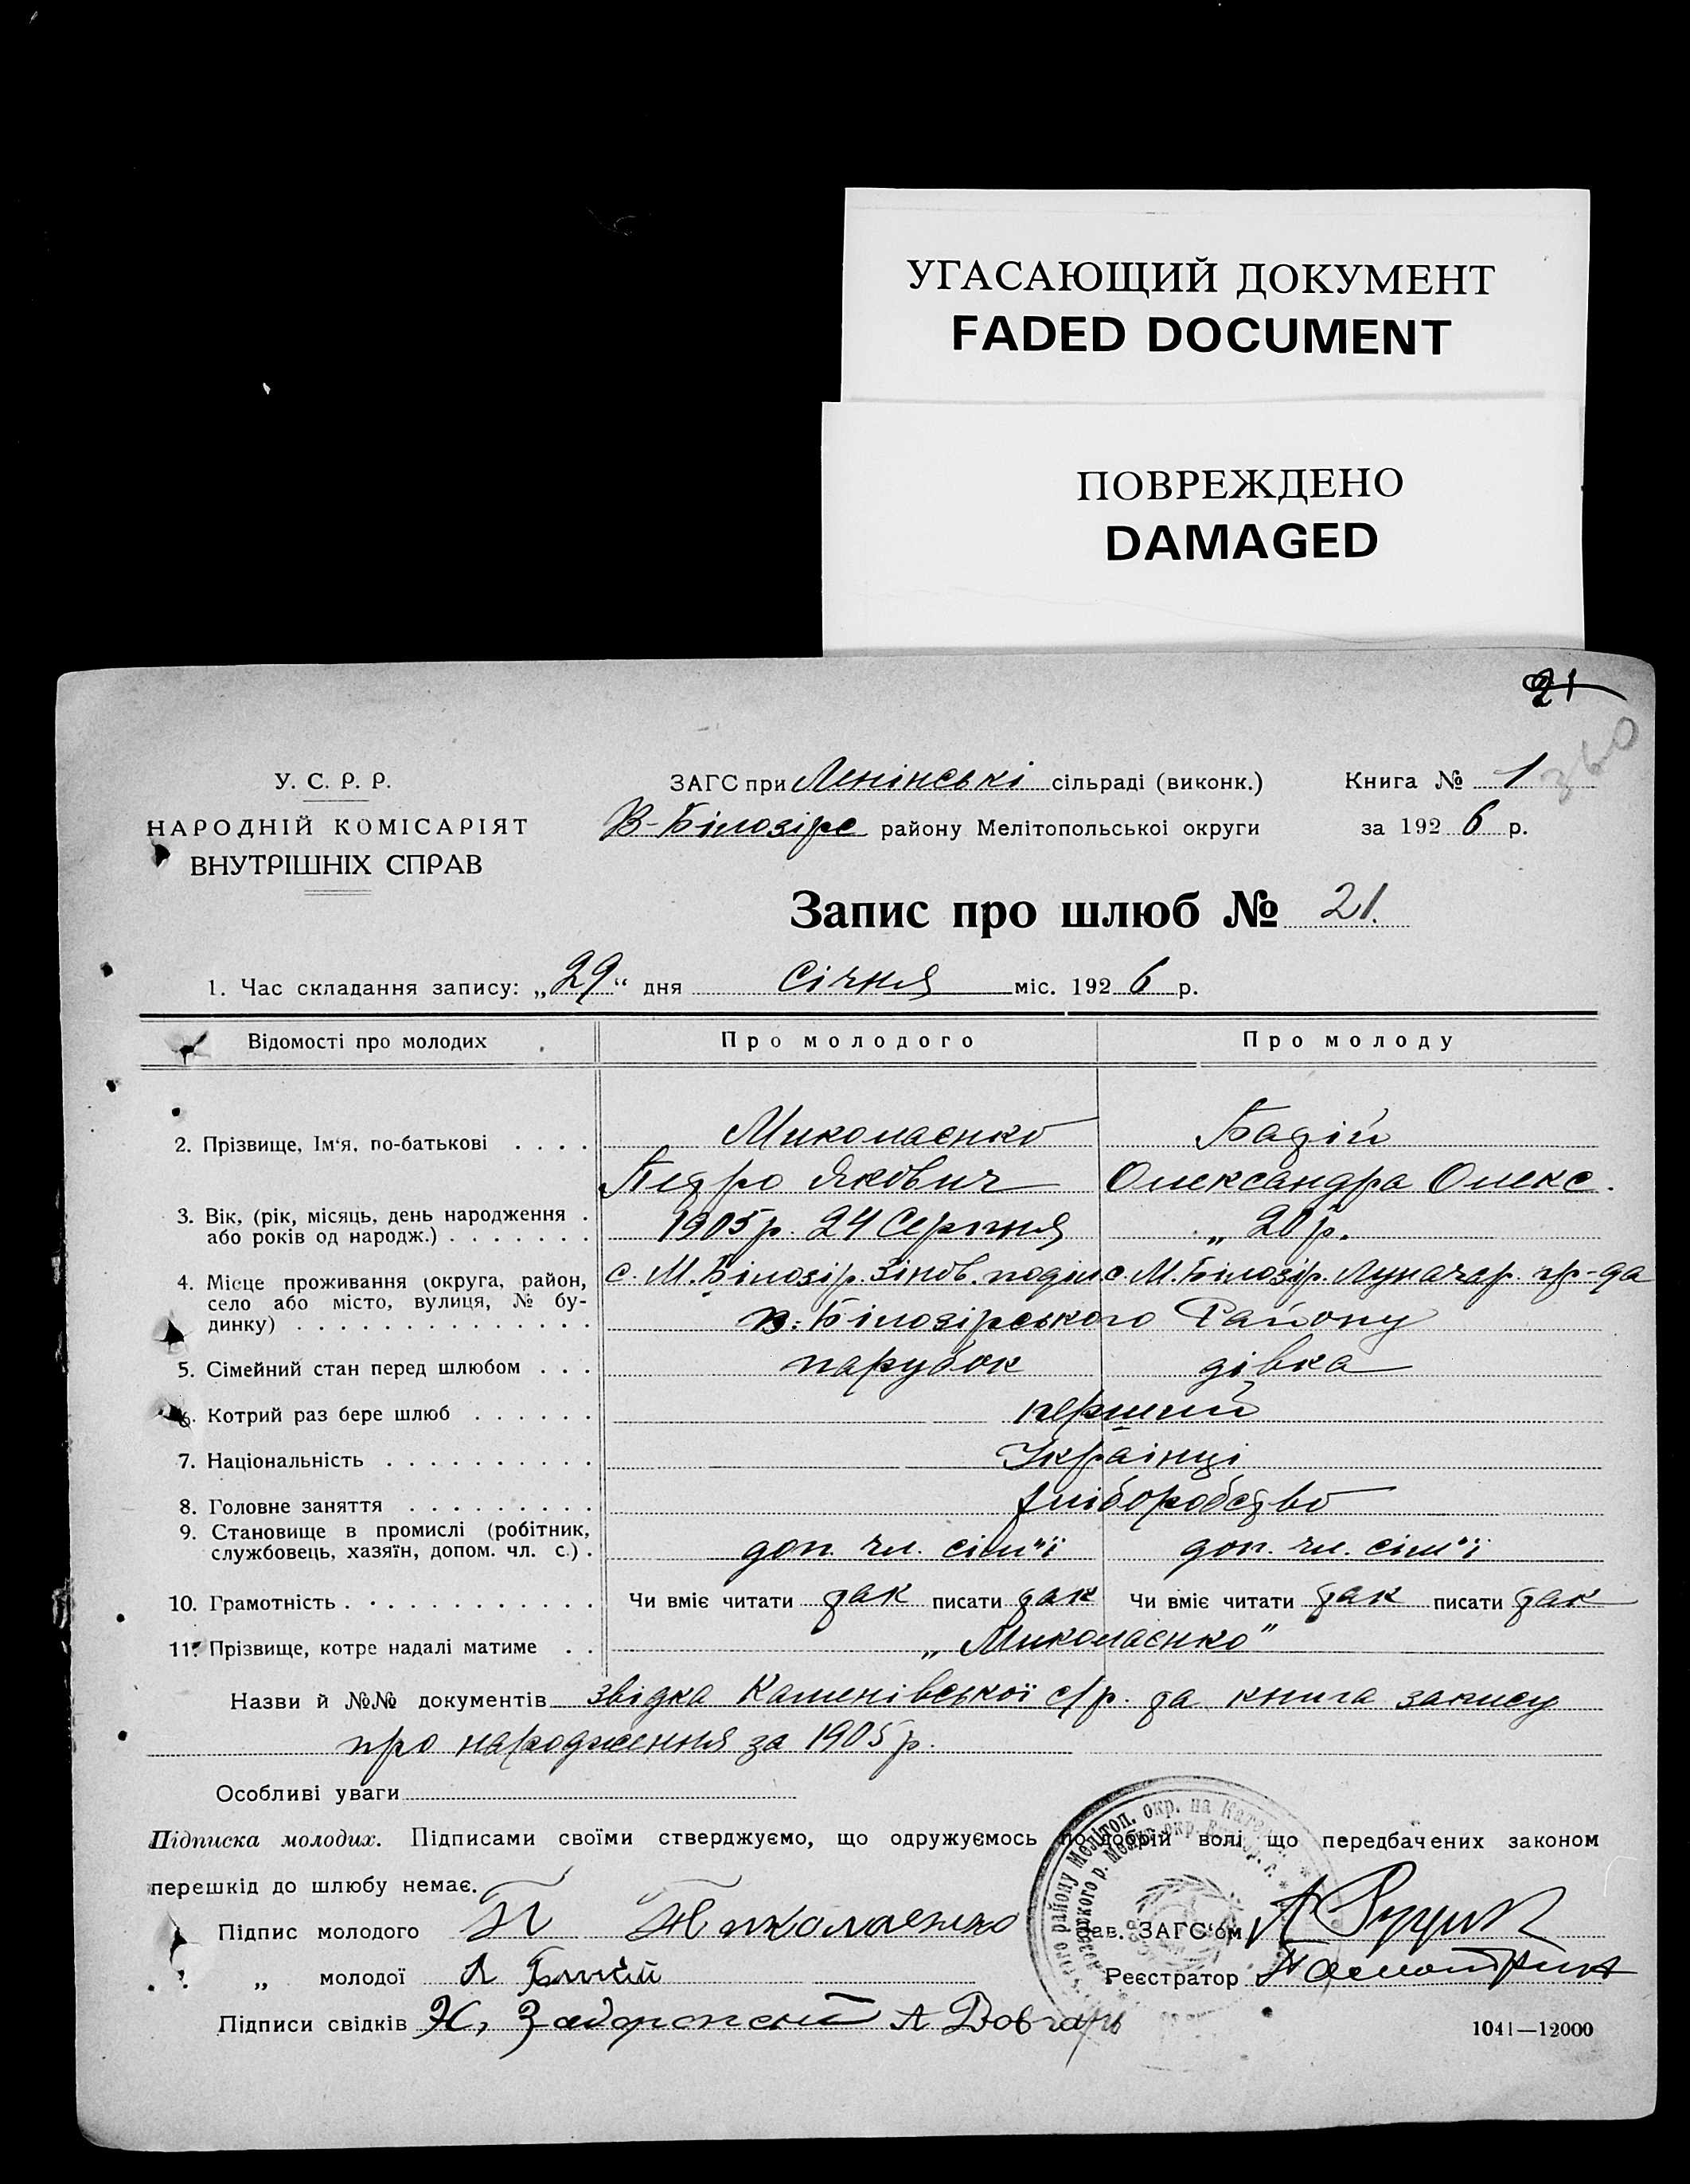 УГАСАЮЩИЙ ДОКУМЕНТ
FADED DOCUMENT
ПОВРЕЖДЕНО
DAMAGED
21
360
У. С. Р. Р.
НАРОДНІЙ КОМІСАРІЯТ
ВНУТРІШНІХ СПРАВ
ЗАГС при Ленінські сільраді (виконк.)
В-Білозірс району Мелітопольської округи
Книга № 1
за 1926 р.
Запис про шлюб № 21.
1. Час складання запису: „29“ дня Січня міс. 1926 р.
Відомості про молодих Про молодого Про молоду
2. Прізвище, Ім'я, по-батькові . . . . Миколаєнко Бабій
Педро Якович Олександра Олекс.
3. Вік, (рік, місяць, день народження . або років од народж.) . . . . . . . 1905 р. 24 Серпня „ 20 р.
4. Місце проживання (округа, район, село або місто, вулиця, № будинку) . . . . . . . . . . . . . . с. М. Білозір. Зінов. поділ с. М. Білозір. Луначар. гр-да
В. Білозірського Району
5. Сімейний стан перед шлюбом . . . парубок дівка
6. Котрий раз бере шлюб . . . . . . перший
7. Національність . . . . . . . . . . Українці
8. Головне заняття . . . . . . . . . хліборобство
9. Становище в промислі (робітник, службовець, хазяїн, допом. чл. с.) . доп. чл. сім"ї доп. чл. сім"ї
10. Грамотність . . . . . . . . . . . Чи вміє читати так писати так Чи вміє читати так писати так
11. Прізвище, котре надалі матиме . . „Миколаєнко"
Назви й №№ документів звідка Каменівської с/р. та книга запису
про народження за 1905 р.
Особливі уваги
Підписка молодих. Підписами своїми стверджуємо, що одружуємось по добрій волі що передбачених законом
перешкід до шлюбу немає.
Підпис молодого П Миколаенко Зав. ЗАГС'ом
„ молодої Реєстратор
Підписи свідків А Довгань
1041—12000